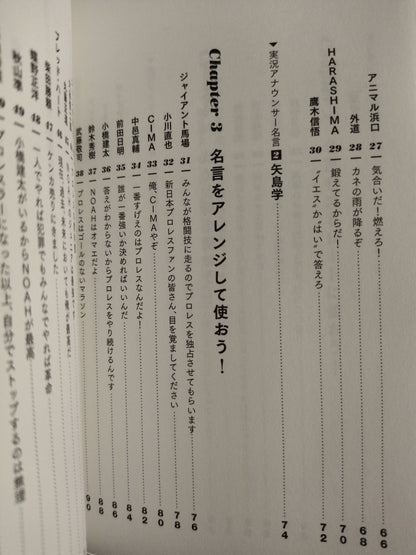 アニマル浜口 27 気合いだー！燃えろ！ 66
外道 28 カネの雨が降るぞ 68
HARASHIMA 29 鍛えてるからだー！ 70
鷹木信悟 30 “イエス”か“はい”で答えろ 72
▼実況アナウンサー名言 2 矢島学 74
Chapter 3 名言をアレンジして使おう！
ジャイアント馬場 31 みんなが格闘技に走るのでプロレスを独占させてもらいます 76
小川直也 32 新日本プロレスファンの皆さん、目を覚ましてください 78
CIMA 33 俺、CIMAやぞ 80
中邑真輔 34 一番すげえのはプロレスなんだよ！ 82
前田日明 35 誰が一番強いか決めればいいんだ 84
小橋建太 36 答えがわからないからプロレスをやり続けるんです 86
鈴木秀樹 37 NOAHはオマエだよ 88
武藤敬司 38 プロレスはゴールのないマラソン 90
柴田勝頼 47 ケンカ売りに来ました
蝶野正洋 48 一人でやれば犯罪でもみんなでやれば革命
秋山準 49 小橋建太がいるからNOAHが最高
になった以上、自分でストップするのは無理